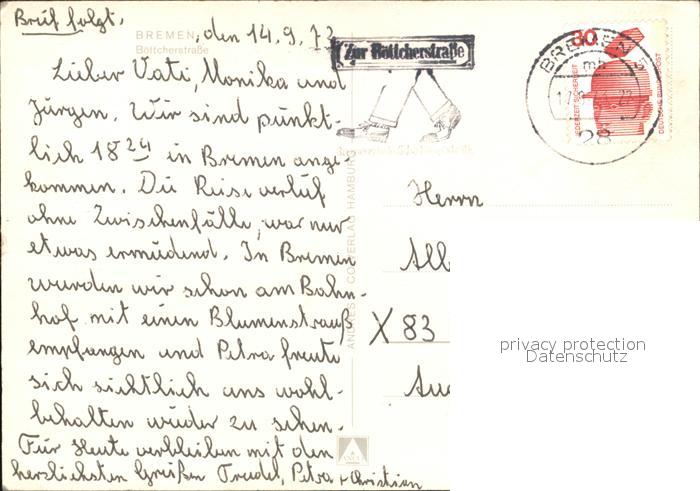 Brief folgt.
BREMEN
Böttcherstraße
den 14.9.73
Lieber Vati, Monika und
Jürgen. Wir sind pünkt-
lich 18 24 in Bremen ange-
kommen. Die Reise verlief
ohne Zwischenfälle, war nur
etwas ermüdend. In Bremen
wurden wir schon am Bahn-
hof mit einen Blumenstrauß
empfangen und Petra freute
sich sichtlich uns wohl-
behalten wieder zu sehen.
Für Heute verbleiben mit den
herzlichsten Grüßen Trudel, Petra + Christian
Zur Böttcherstraße
BREMEN
mb
28
30
JEDERZEIT SICHERHEIT
DEUTSCHE BUNDESPOST
HAMBURG
Herrn
Alb
X 83
privacy protection
Datenschutz